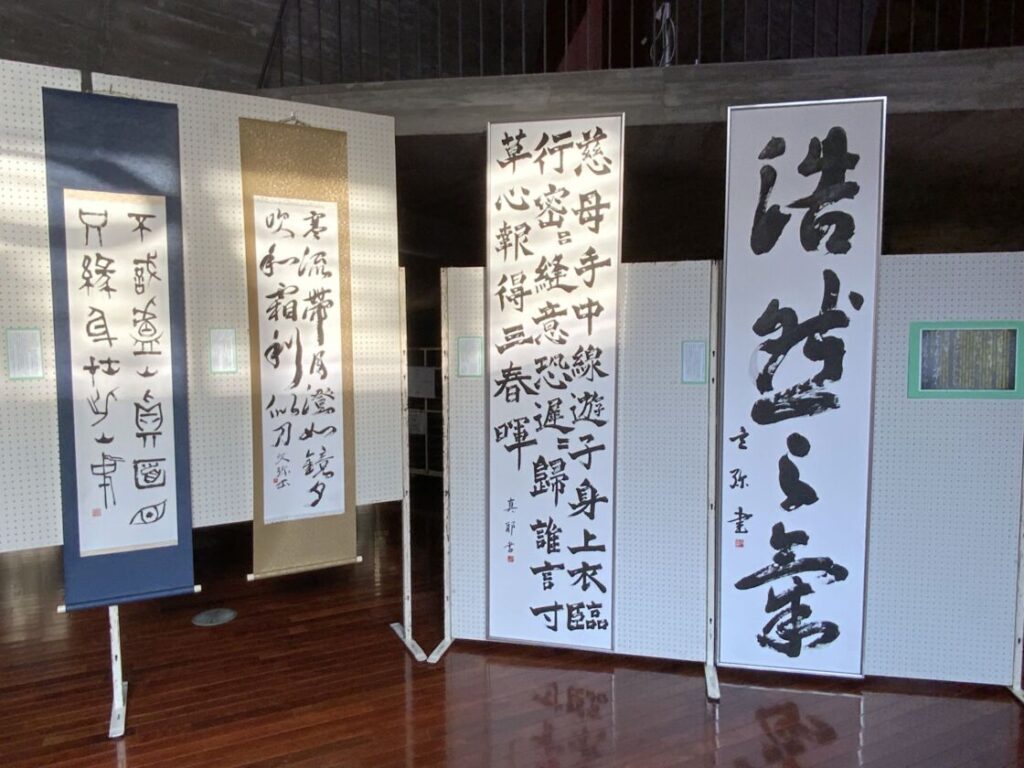 浩然之氣
慈母手中線遊子身上衣臨
行密〻縫意恐遲〻歸誰言寸
草心報得三春暉
真耶書
寒流帶月澄如鏡夕
吹和霜利似刀
不識廬山真面目
只緣身在此山中